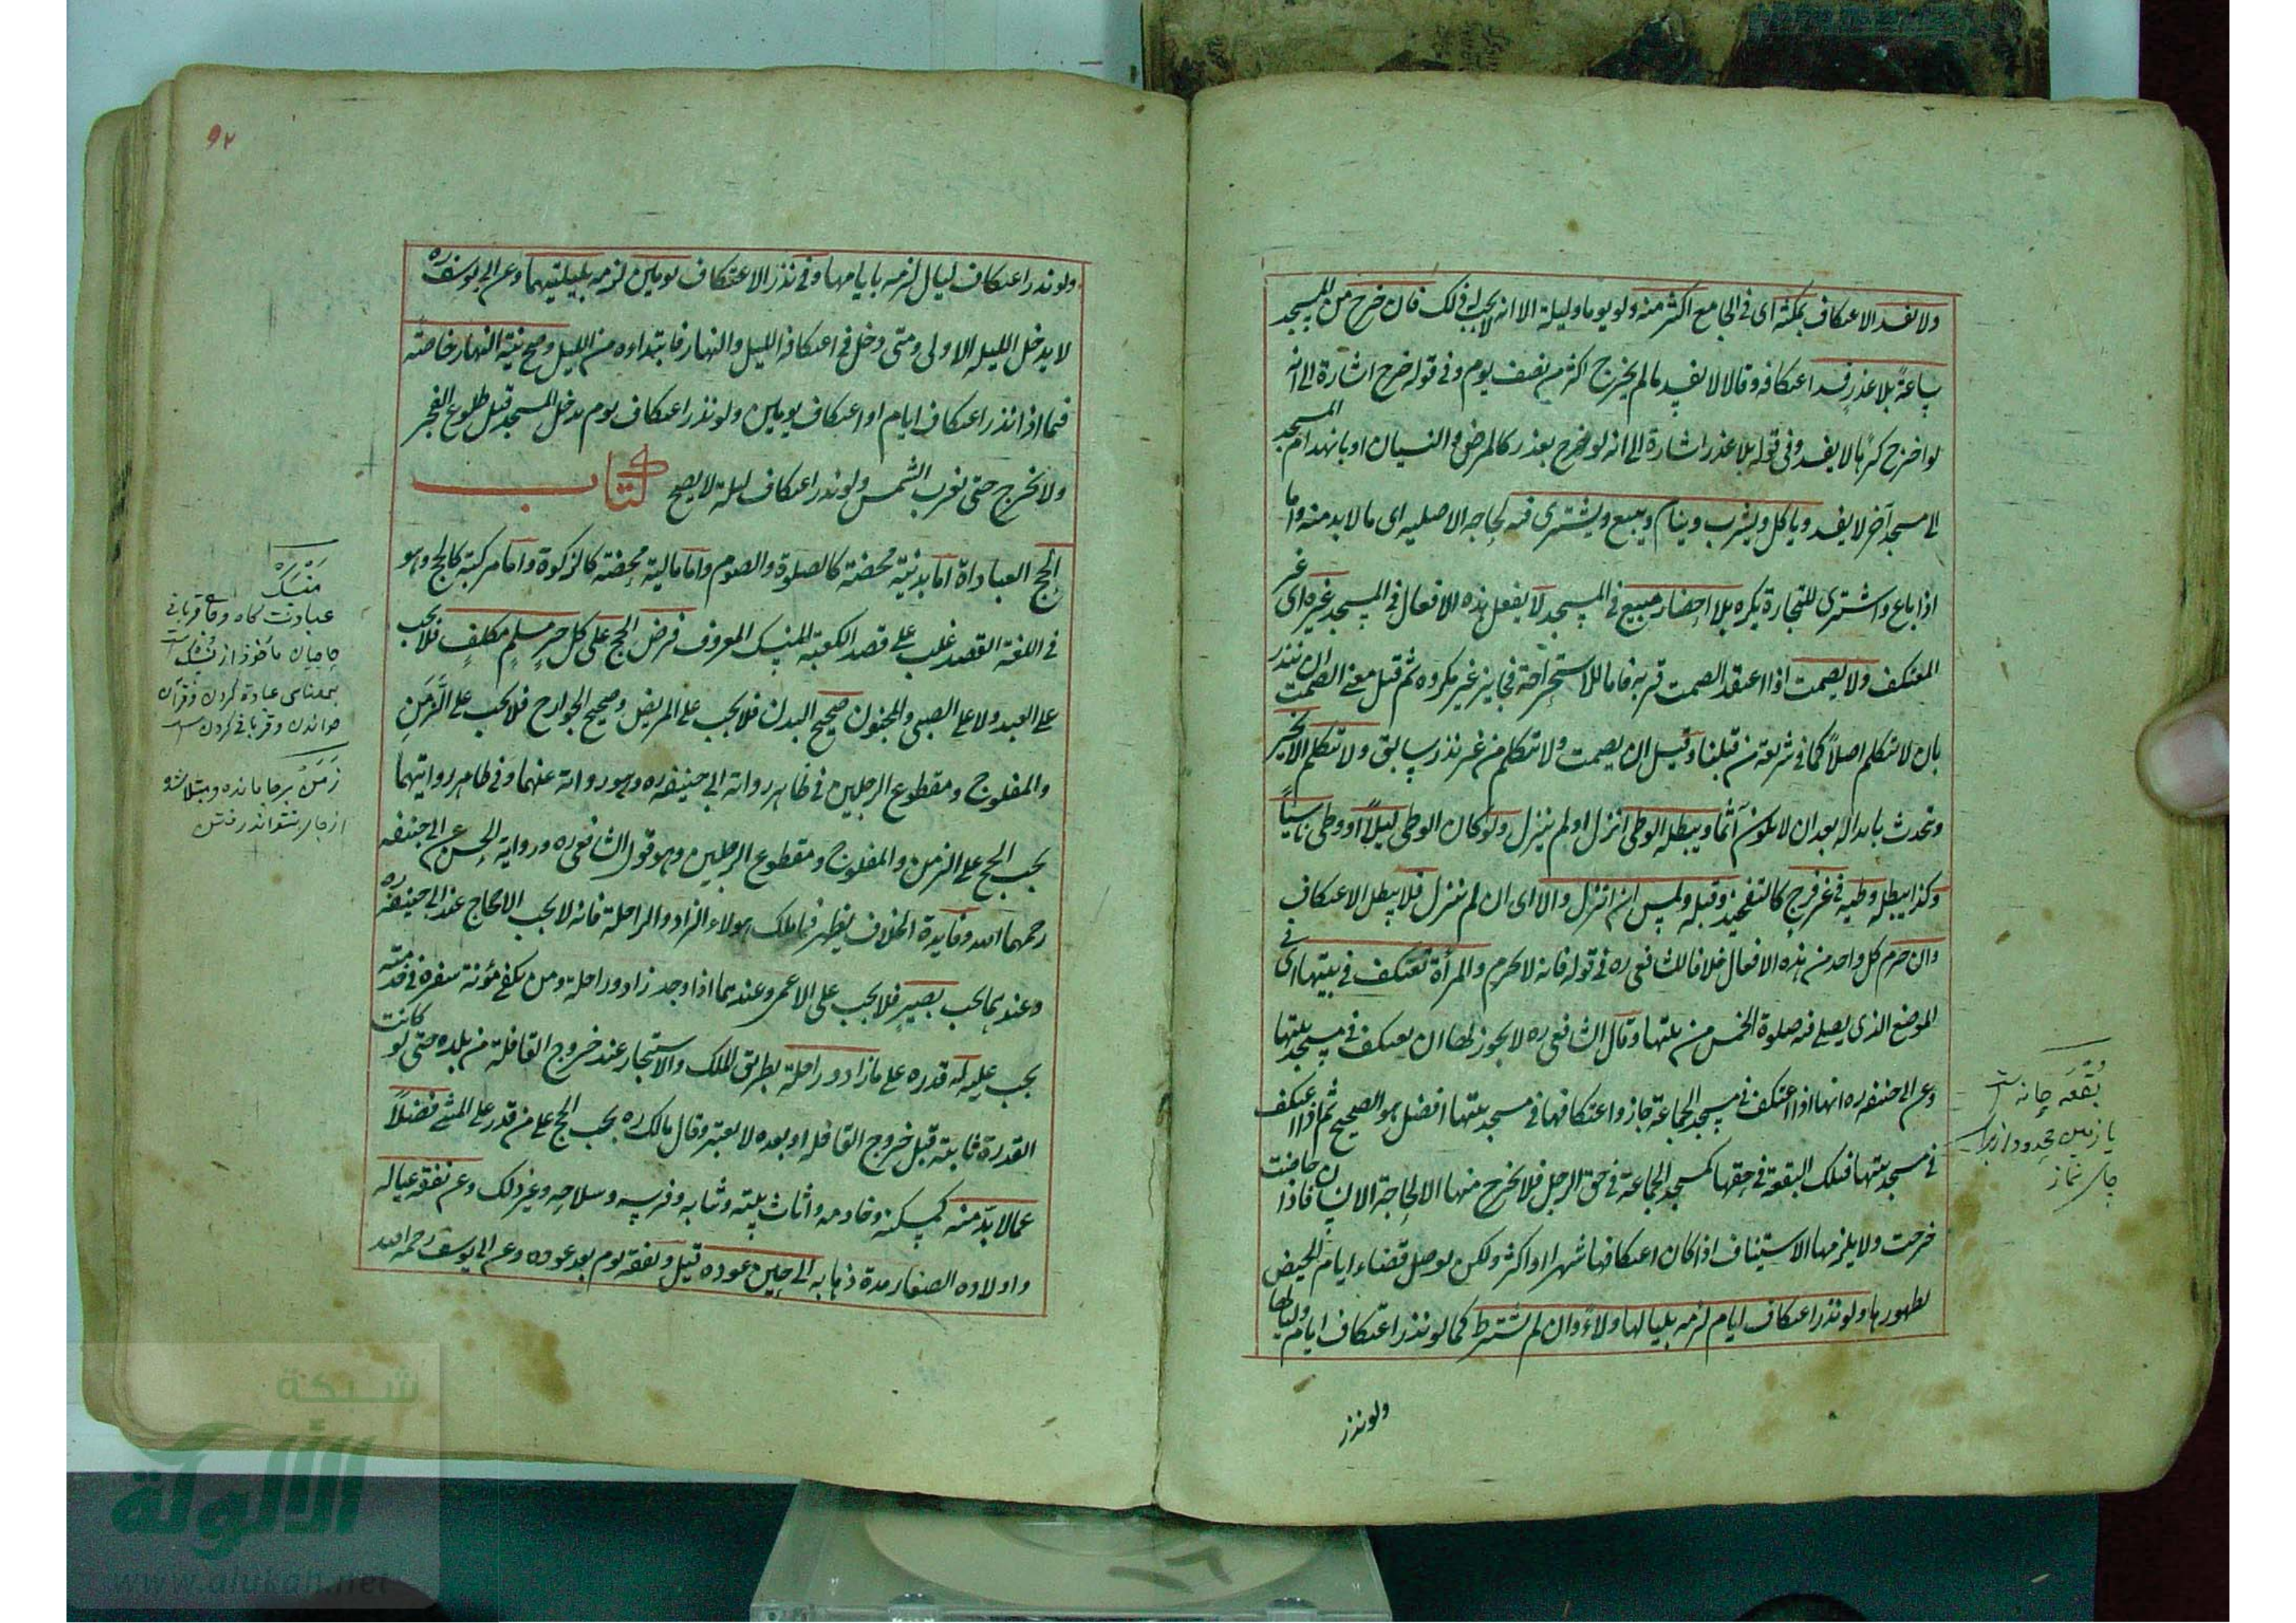 ولا يفسد الاعتكاف بمكثه اى فى الجامع اكثر منه ولو يوما وليلة الا انه لا يجب له ذلك فان خرج من المسجد
ساعةً بلا عذرٍ فسد اعتكافه وقالا لا يفسد ما لم يخرج اكثر من نصف يوم وفى قوله خرج اشارة الى انه
لو اخرج كرها لا يفسد وفى قوله بلا عذر اشارة الى انه لو خرج بعذر كالمرض والنسيان او بانهدام المسجد
الى مسجد آخر لا يفسد وياكل ويشرب وينام ويبيع ويشترى فيه لحاجه الاصليه اى ما لا بد منه واما
اذا باع واشترى للتجارة يكره بلا احضار مبيع فى المسجد لا يفعل هذه الافعال فى المسجد غيره اى غير
المعتكف ولا يصمت اذا اعتقد الصمت قربه فاما للاستراحة فجايز غير مكروه ثم قيل معنى الصمت ان ينذر
بان لا يتكلم اصلاً كما فى شريعة من قبلنا وقيل ان يصمت ولا يتكلم من غير نذر سابق ولا يتكلم الا بخير
ويتحدث بما بدا له بعد ان لا يكون آثما ويبطله الوطى انزل او لم ينزل ولو كان الوطى ليلاً او وطى ناسياً
وكذا يبطله وطيه فى غير فرج كالتفخيذ وقبله ولمس ان انزل والا اى ان لم ينزل فلا يبطل الاعتكاف
وان حرم كل واحد من هذه الافعال خلافا للشافعى ره فى قوله فانه لا يحرم والمرأة تعتكف فى بيتها اى فى
الموضع الذى يصلى فيه صلوة الخمس من بيتها وقال الشافعى ره لا يجوز لها ان يعتكف فى مسجد بيتها
وعن ابى حنيفه ره انها اذا اعتكف فى مسجد الجماعة جاز واعتكافها فى مسجد بيتها افضل هو الصحيح ثم اذا اعتكف
فى مسجد بيتها فتلك البقعة فى حقها كمسجد الجماعة فى حق الرجل فلا يخرج منها الا لحاجة الانسان فاذا حاضت
خرجت ولا يلزمها الاستيناف اذا كان اعتكافها شهرا او اكثر ولكن يوصل قضاء ايام الحيض
بطهورها ولو نذر اعتكاف ايام لزمه بلياليها ولاءً وان لم يشترط كما لو نذر اعتكاف ايام ولياليها
ولو نذر
بقعه
يا زمين محدود از براى
جاى نماز
٩٢
ولو نذر اعتكاف ليال لزمه بايامها وفى نذر الاعتكاف يومين لزمه بليلتيهما وعن ابى يوسف ره
لا يدخل الليله الاولى ومتى دخل فى اعتكافه الليل والنهار فابتداءه من الليل وصح نية النهار خاصّة
فيما اذا نذر اعتكاف ايام او اعتكاف يومين ولو نذر اعتكاف يوم يدخل المسجد قبل طلوع الفجر
ولا يخرج حتى تغرب الشمس ولو نذر اعتكاف ليلة لا يصح كتاب
الحج العباداة اما بدنية محضة كالصلوة والصوم واما مالية محضة كالزكوة واما مركبة كالحج وهو
فى اللغة القصد غلب على قصد الكعبة للمنسك المعروف فرض الحج على كل حرٍ مسلمٍ مكلفٍ فلا يجب
على العبد ولا على الصبى والمجنون صحيح البدن فلا يجب على المريض وصحيح الجوارح فلا يجب على الزَّمِنِ
والمفلوج ومقطوع الرجلين فى ظاهر رواية ابى حنيفه ره وهو رواية عنهما وفى ظاهر روايتهما
يجب الحج على الزمن والمفلوج ومقطوع الرجلين وهو قول الشافعى ره ورواية الحسن عن ابى حنيفه
رحمهما الله وفايدة الخلاف يظهر فيما ملك هولاء الزاد والراحلة فانه لا يجب الاحجاج عند ابى حنيفه ره
وعندهما يجب بصيرٍ فلا يجب على الاعمى وعندهما اذا وجد زاد وراحلة ومن يكفى مؤنة سفره فى خدمته
يجب عليه له قدره على زاد وراحلة بطريق الملك والاستيجار عند خروج القافلة من بلده حتى لو كانت
القدرة ثابتة قبل خروج القافله او بعده لا يعتبر وقال مالك ره يجب الحج على من قدر على المشى فضلاً
عما لا بدّ منه كمسكنه وخادمه واثاث بيته وثيابه وفرسه وسلاحه وغير ذلك وعن نفقة عياله
واولاده الصغار مدة ذهابه الى حين عوده قيل ونفقة يوم بعد عوده وعن ابى يوسف رحمه الله
مَنْسَكْ
عبادت كاه وجاى قربانى
حاجيان مأخوذ از نسك
بمعناى عبادة كردن وقرآن
خواندن وقربانى كردن
زَمِن برجا مانده ومبتلا شد
از جاى نتواند رفتن
شبكة
الألوكة
www.alukah.net